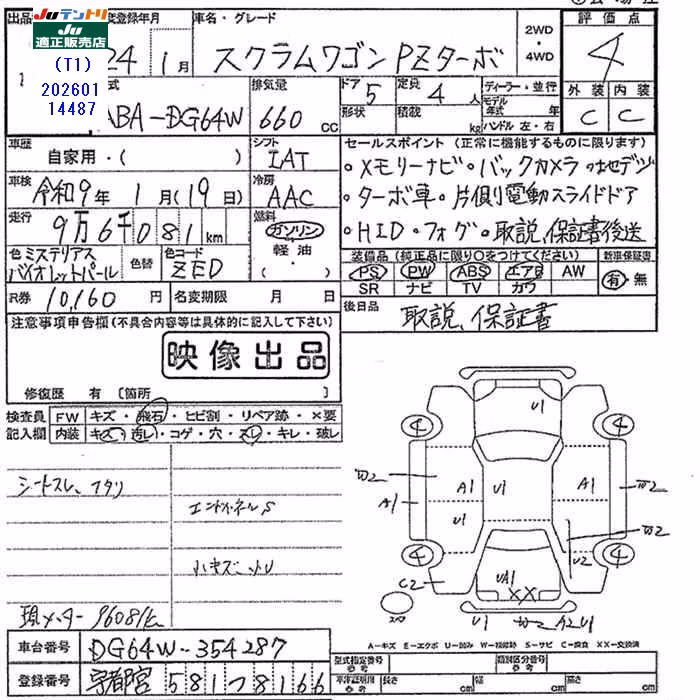 出品
Ju テントリ
Ju適正販売店
(T1)
202601
14487
度登録年月
24 1月
車名・グレード
スクラムワゴン PZターボ
2WD
・
4WD
評価点
4
外装 内装
C C
式
ABA-DG64W
排気量
660 cc
ドア 5
形状
定員 4 人
積載 kg
ディーラー・並行
モデル年式 年
ハンドル 左・右
車歴
自家用・( )
シフト
IAT
セールスポイント (正常に機能するものに限ります)
・メモリーナビ・バックカメラ・地デジ
・ターボ車・片側電動スライドドア
・HID・フォグ・取説、保証書後送
車検
令和9年 1月(19日)
冷房
AAC
走行
9万6千081km
燃料
ガソリン
軽・油
( )
色 ミステリアスバイオレットパール
色替
色コード
ZED
装備品(純正品に限り○をつけてください)
新車保証書
PS PW ABS エアB AW
SR ナビ TV カワ
有・無
R券 10,160円
名変期限 月 日
後日品 取説、保証書
注意事項申告欄(不具合内容等は具体的に記入して下さい)
映像出品
修復歴 有〔箇所 〕
検査員
記入欄
FW キズ・飛石・ヒビ割・リペア跡・×要
内装 キズ・汚レ・コゲ・穴・スレ・キレ・破レ
シートスレ、フタリ
エンドパネルS
小キズ・凹U
現メーター96081km
U1
4 4
W2 A1 U1 A1 W2
A1 U1 W2
U2
4 4
C2 UA1
XX
スペア U1 W2 A2U1
A-キズ E-エクボ U-凹み W-補修跡 S-サビ C-腐食 XX-交換済
車台番号 DG64W-354287
登録番号 宇都宮 581 つ 8166
型式指定番号
参考
類別区分番号
参考
車庫証明用
参考
長さ cm
幅 cm
高さ cm